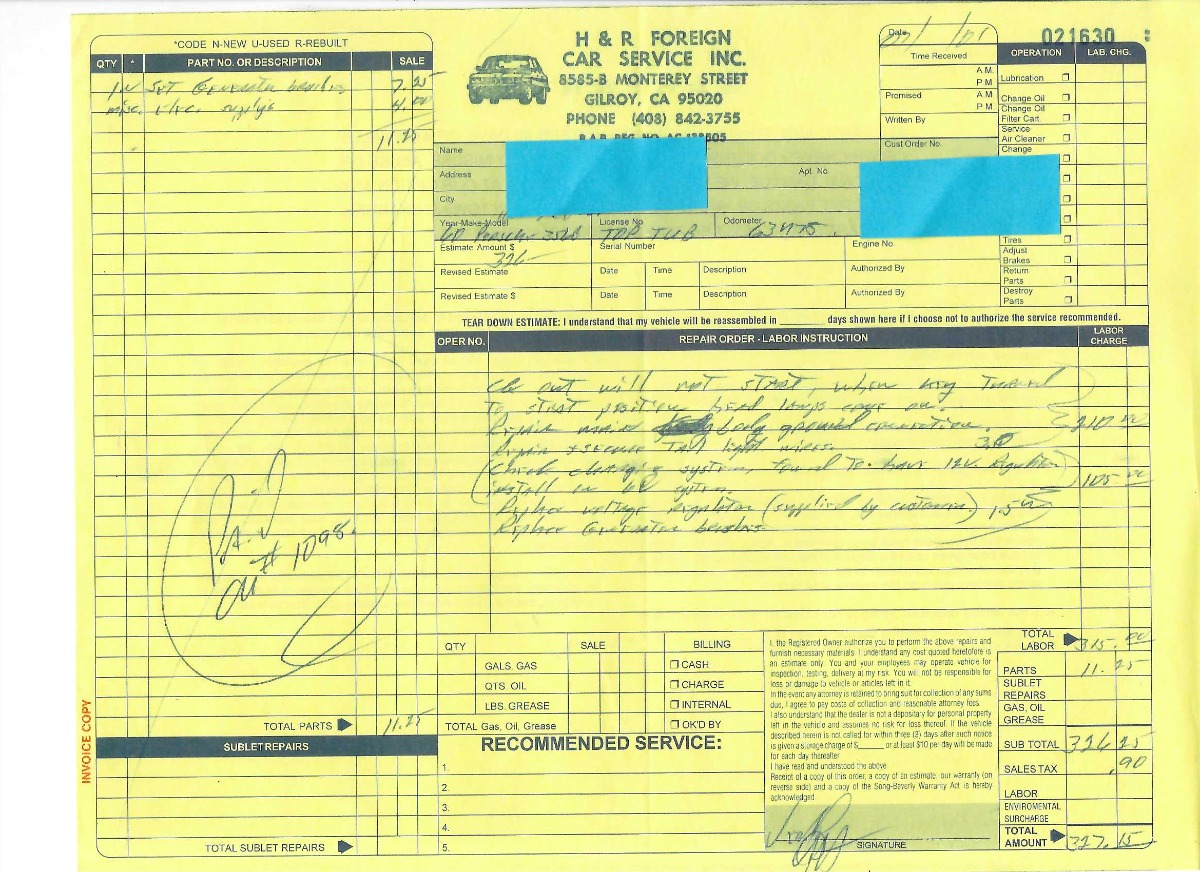 *CODE N-NEW U-USED R-REBUILT
QTY * PART NO. OR DESCRIPTION SALE
1 N SET Generator brushes 7.25
misc. elec. supplys 4.00
11.25
H & R FOREIGN
CAR SERVICE INC.
8585-B MONTEREY STREET
GILROY, CA 95020
PHONE (408) 842-3755
Date
021630
Time Received
A.M.
P.M.
Promised
A.M.
P.M.
Written By
Cust Order No.
OPERATION LAB. CHG.
Lubrication
Change Oil
Change Oil
Filter Cart.
Service
Air Cleaner
Change
Tires
Adjust
Brakes
Return
Parts
Destroy
Parts
Name
Address Apt. No.
City
Year-Make-Model License No. Odometer
TUB 63475
Estimate Amount $ Serial Number Engine No.
326
Revised Estimate Date Time Description Authorized By
Revised Estimate $ Date Time Description Authorized By
TEAR DOWN ESTIMATE: I understand that my vehicle will be reassembled in ______ days shown here if I choose not to authorize the service recommended.
OPER NO. REPAIR ORDER - LABOR INSTRUCTION LABOR CHARGE
Ck out will not start, when key turned
to start position head lamps come on.
Repair main body ground 210.00
Repair & secure tail light wires. 3.0
(Check charging system, found to have 12V. Regulator
install on 6V system. 105.00
Replace voltage regulator (supplied by customer) 1.5
Replace Generator brushes
Paid
CK# 1098
QTY SALE BILLING
GALS. GAS
QTS. OIL
LBS. GREASE
CASH
CHARGE
INTERNAL
OK'D BY
TOTAL PARTS 11.25
TOTAL Gas, Oil, Grease
SUBLET REPAIRS
TOTAL SUBLET REPAIRS
RECOMMENDED SERVICE:
1.
2.
3.
4.
5.
I, the Registered Owner authorize you to perform the above repairs and
furnish necessary materials. I understand any cost quoted heretofore is
an estimate only. You and your employees may operate vehicle for
inspection, testing, delivery at my risk. You will not be responsible for
loss or damage to vehicle or articles left in it.
In the event any attorney is retained to bring suit for collection of any sums
due, I agree to pay costs of collection and reasonable attorney fees.
I also understand that the dealer is not a depositary for personal property
left in the vehicle and assumes no risk for loss thereof. If the vehicle
described herein is not called for within three (3) days after such notice
is given a storage charge of $_____ or at least $10 per day will be made
for each day thereafter
I have read and understood the above
Receipt of a copy of this order, a copy of an estimate, our warranty (on
reverse side) and a copy of the Song-Beverly Warranty Act is hereby
acknowledged
SIGNATURE
TOTAL LABOR 315.00
PARTS 11.25
SUBLET REPAIRS
GAS, OIL GREASE
SUB TOTAL 326.25
SALES TAX .90
LABOR
ENVIROMENTAL SURCHARGE
TOTAL AMOUNT 327.15
INVOICE COPY